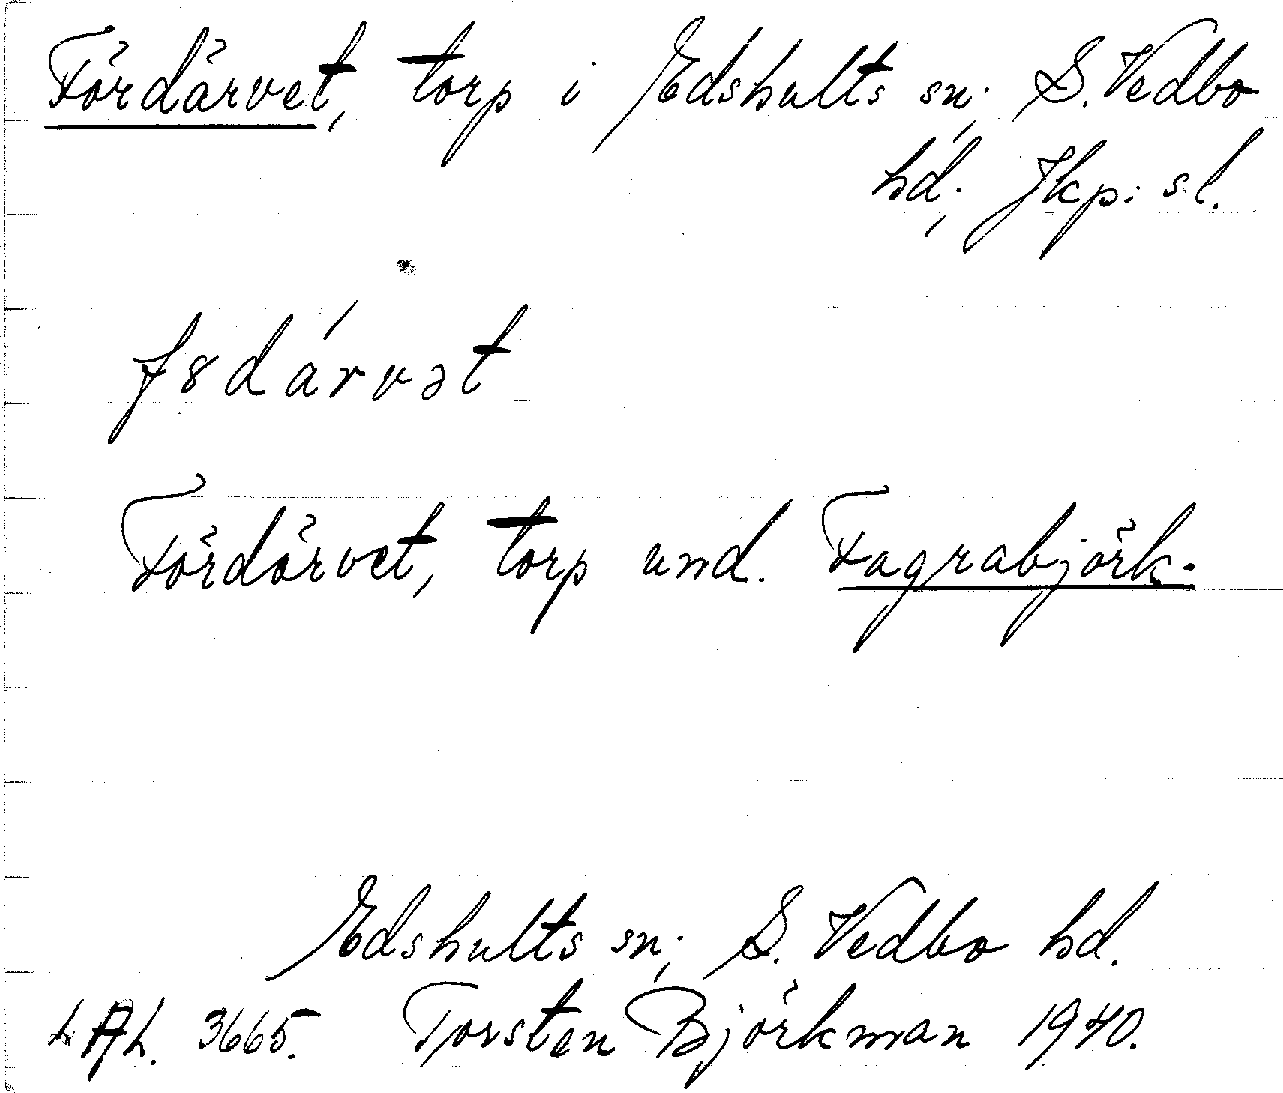 Fördärvet, torp i Edshults sn, S. Vedbo
hd, Jkp: s l.
f8dá́rvət
Fördärvet, torp und. Fagrabjörk.
Edshults sn, S. Vedbo hd.
LAL. 3665. Torsten Björkman 1940.